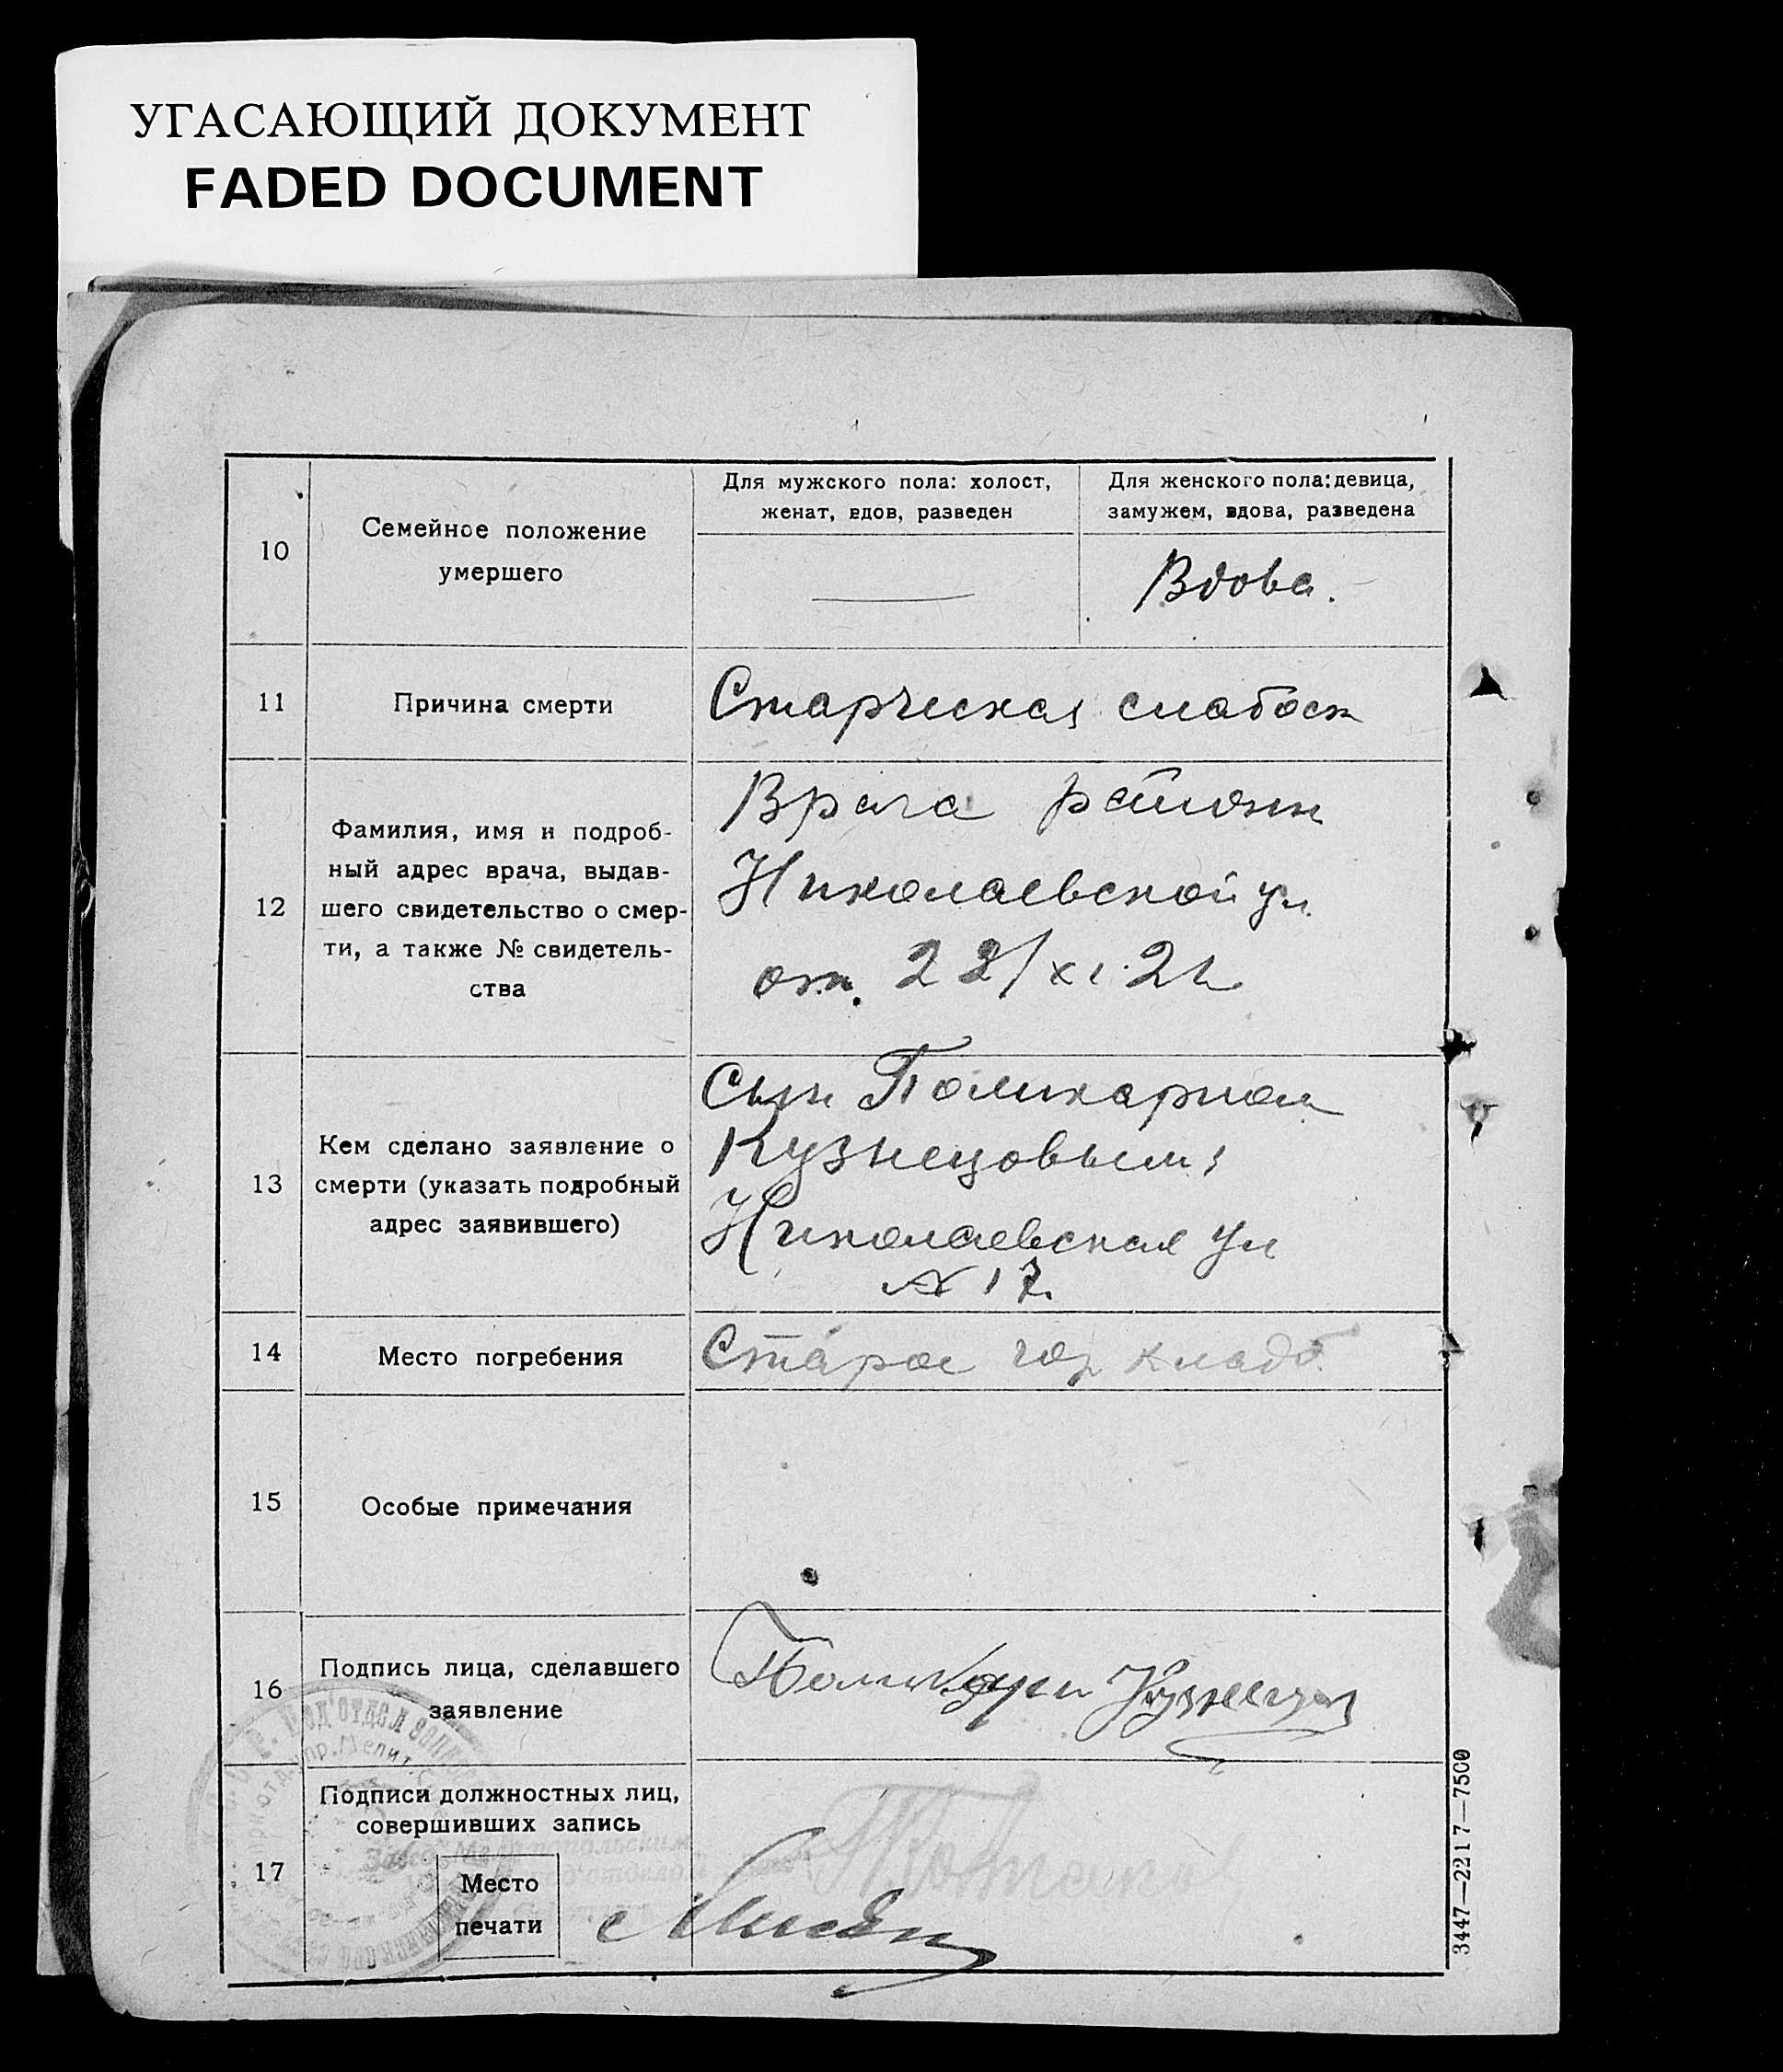 УГАСАЮЩИЙ ДОКУМЕНТ
FADED DOCUMENT
10
Семейное положение
умершего
Для мужского пола: холост,
женат, вдов, разведен
Для женского пола: девица,
замужем, вдова, разведена
Вдова.
11
Причина смерти
Старческая слабост
12
Фамилия, имя и подроб-
ный адрес врача, выдав-
шего свидетельство о смер-
ти, а также № свидетель-
ства
Врача
Николаевской ул.
от. 22/XI
13
Кем сделано заявление о
смерти (указать подробный
адрес заявившего)
Сын Поликарпом
Кузнецовым;
Николаевская ул
№ 17.
14
Место погребения
Старое гор кладб.
15
Особые примечания
16
Подпись лица, сделавшего
заявление
Поликарп Кузнецов
17
Подписи должностных лиц,
совершивших запись
Место
печати
3447—2217—7500